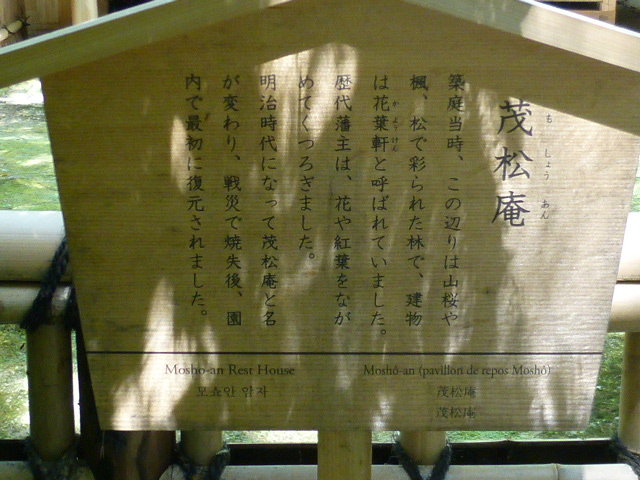 茂松庵
もしょうあん
築庭当時、この辺りは山桜や
楓、松で彩られた林で、建物
は花葉軒と呼ばれていました。
かようけん
歴代藩主は、花や紅葉をなが
めてくつろぎました。
明治時代になって茂松庵と名
が変わり、戦災で焼失後、園
内で最初に復元されました。
Moshō-an Rest House
모쇼안 암자
Moshô-an (pavillon de repos Moshô)
茂松庵
茂松庵